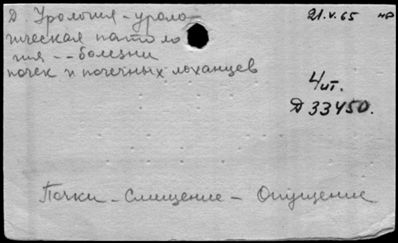 Д Урология - уроло-
гическая патоло
гия - - болезни
почек и почечных лоханцев
21.V.65 нр
4 ит.
Д 33450.
Почки - Смещение - Опущение